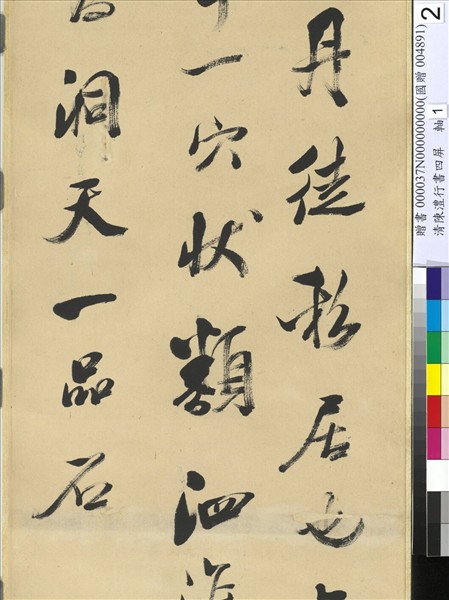 丹徒私居也
十一穴狀類泗淮
洞天一品石
贈書 000037N000000000(國贈 004891)
清陳澧行書四屏 軸 1
2